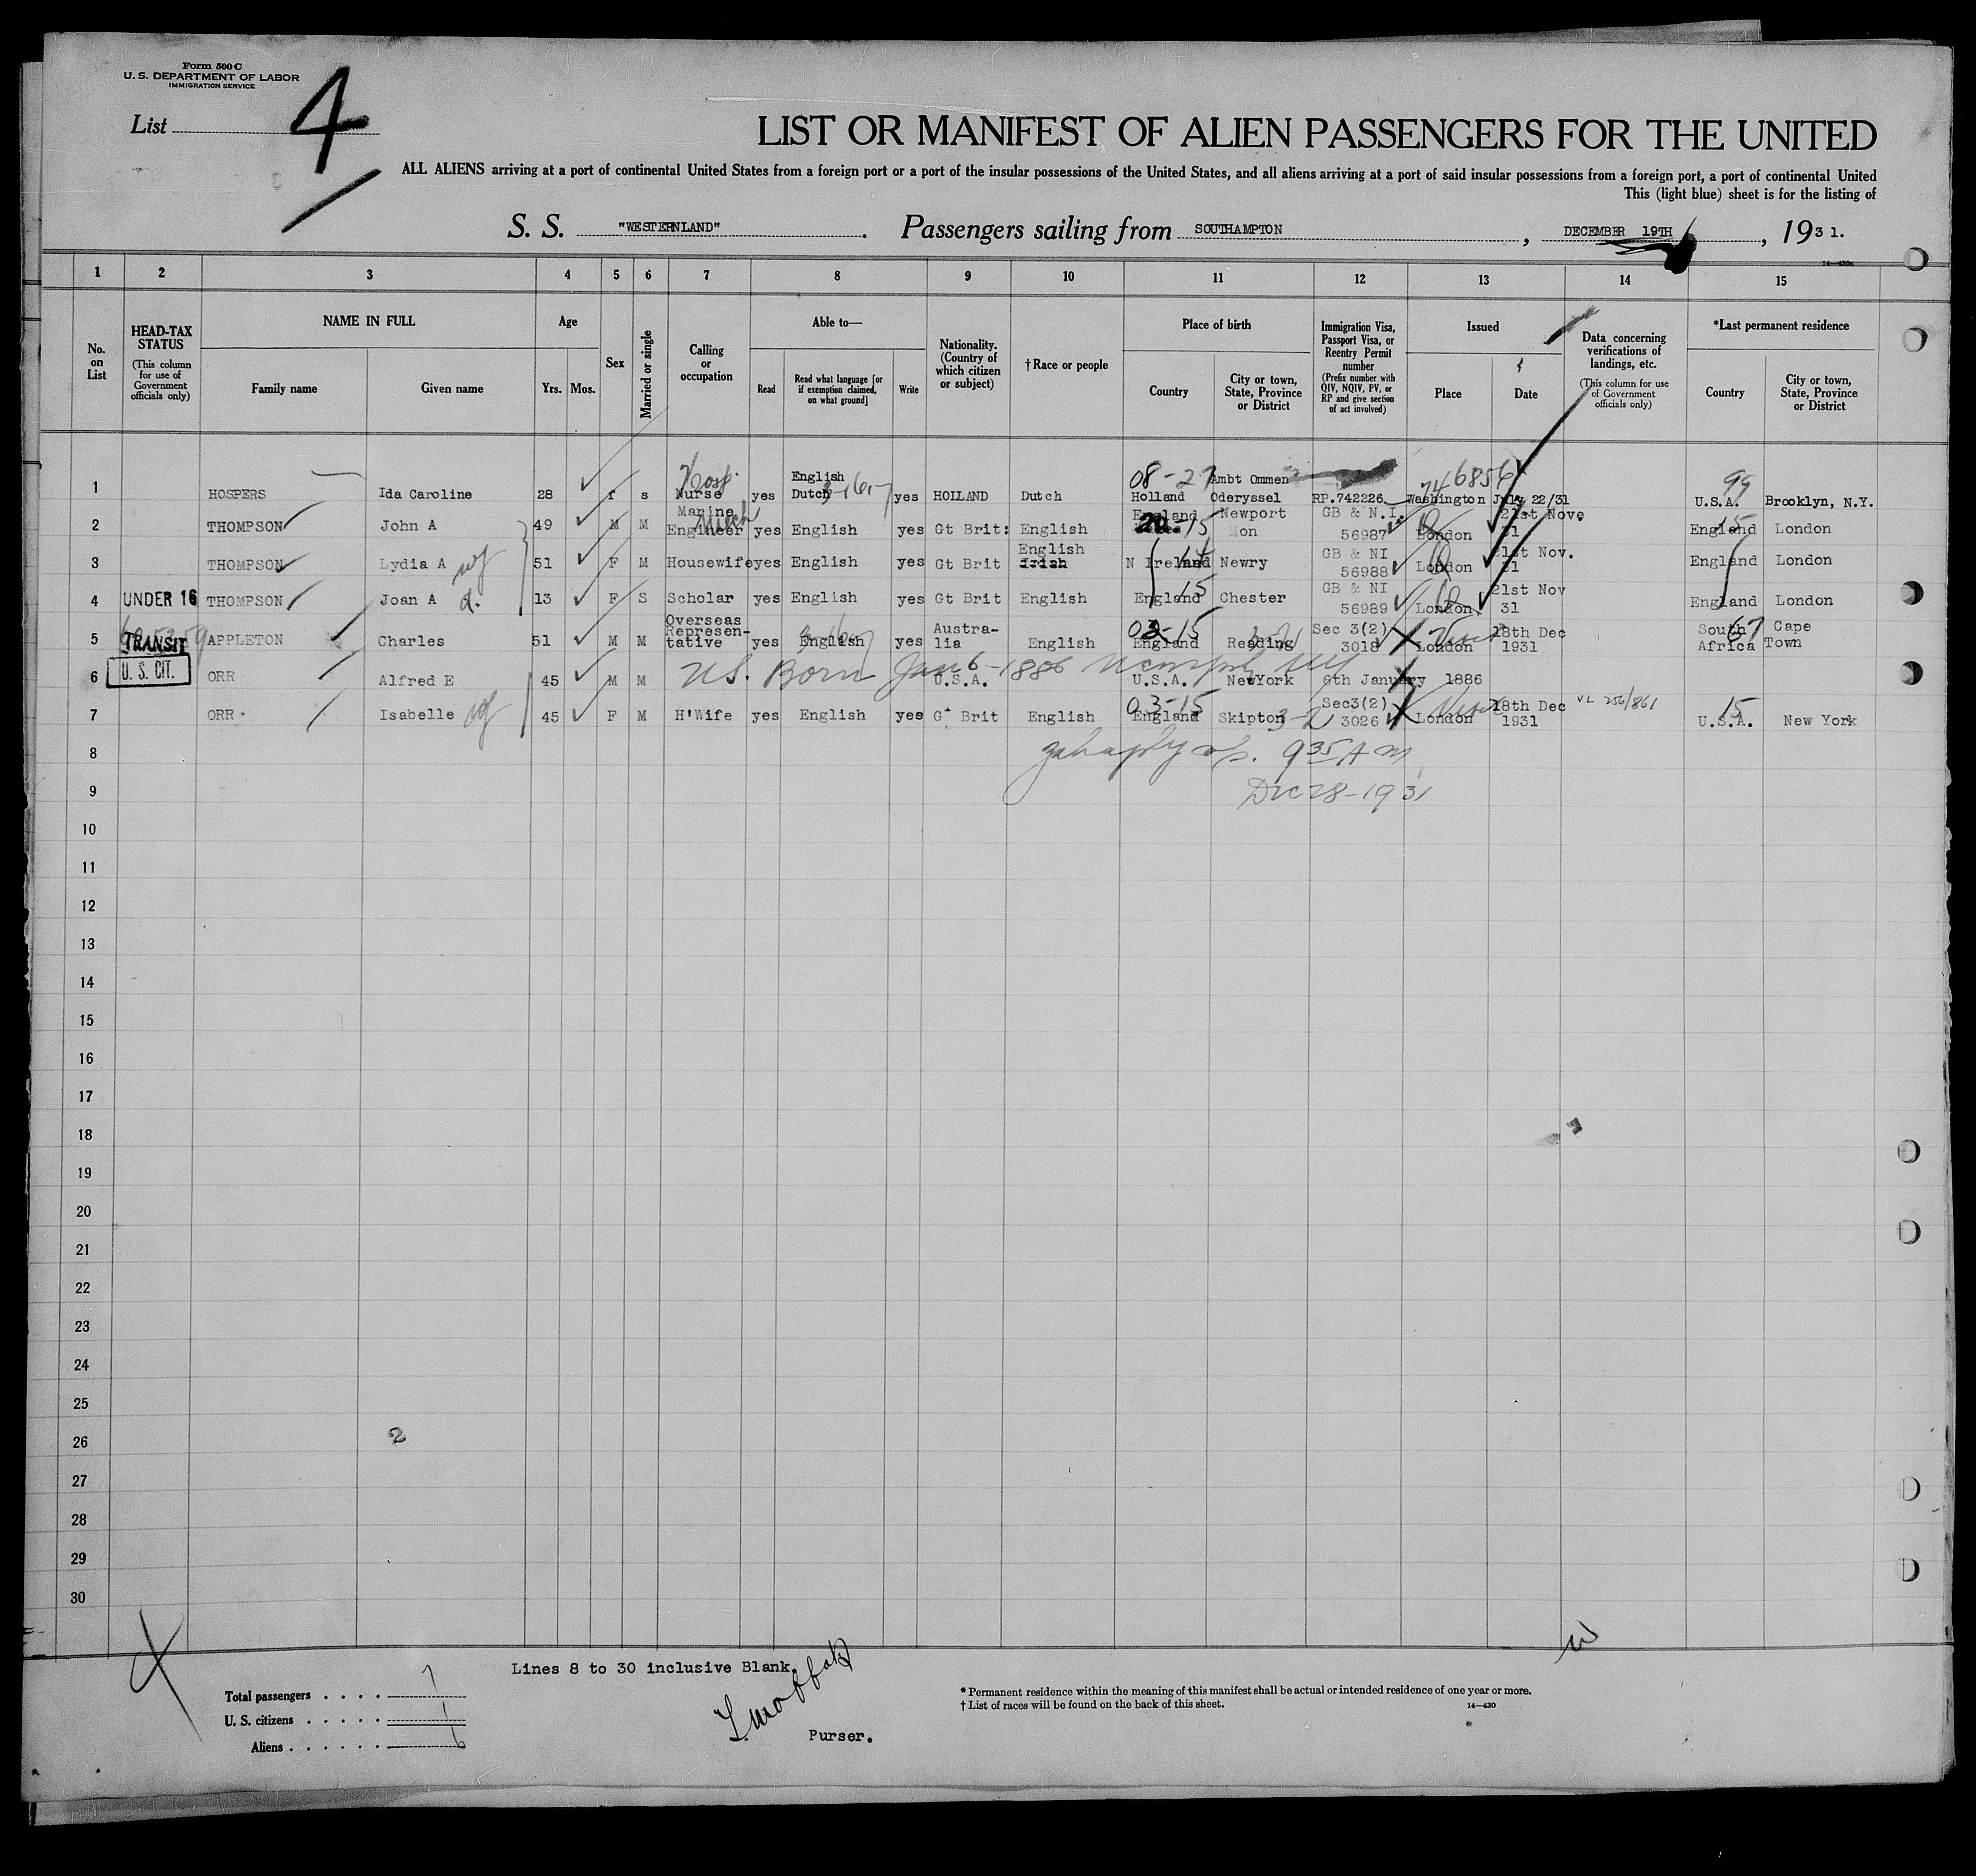 Form 500 C
U. S. DEPARTMENT OF LABOR
IMMIGRATION SERVICE
List 4
LIST OR MANIFEST OF ALIEN PASSENGERS FOR THE UNITED
ALL ALIENS arriving at a port of continental United States from a foreign port or a port of the insular possessions of the United States, and all aliens arriving at a port of said insular possessions from a foreign port, a port of continental United
This (light blue) sheet is for the listing of
S. S. "WESTERNLAND". Passengers sailing from SOUTHAMPTON, DECEMBER 19TH, 1931.
14—430a
1 2 3 4 5 6 7 8 9 10 11 12 13 14 15
No. on List
HEAD-TAX STATUS
(This column for use of Government officials only)
NAME IN FULL
Family name
Given name
Age
Yrs.
Mos.
Sex
Married or single
Calling or occupation
Able to—
Read
Read what language [or if exemption claimed, on what ground]
Write
Nationality. (Country of which citizen or subject)
† Race or people
Place of birth
Country
City or town, State, Province or District
Immigration Visa, Passport Visa, or Reentry Permit number
(Prefix number with QIV, NQIV, PV, or RP and give section of act involved)
Issued
Place
Date
Data concerning verifications of landings, etc.
(This column for use of Government officials only)
*Last permanent residence
Country
City or town, State, Province or District
1 HOSPERS Ida Caroline 28 f s Hosp. Nurse yes English Dutch yes HOLLAND Dutch 08-27 Holland Ambt Ommen Oderyssel RP.742226 Washington July 22/31 99 U.S.A. Brooklyn, N.Y.
2 THOMPSON John A 49 M M Marine Engineer Mech yes English yes Gt Brit: English England 15 Newport Mon GB & N.I. 56987 London 21st Nove 31 England 15 London
3 THOMPSON Lydia A wf 51 F M Housewife yes English yes Gt Brit English Irish N Ireland 14 Newry GB & NI 56988 London 21st Nov. 31 England London
4 UNDER 16 THOMPSON Joan A d. 13 F S Scholar yes English yes Gt Brit English England 15 Chester GB & NI 56989 London 21st Nov 31 England London
5 TRANSIT APPLETON Charles 51 M M Overseas Represen-tative yes English yes Austra-lia English 03-15 England Reading Sec 3(2) 3018 London Visit 18th Dec 1931 South Africa 67 Cape Town
6 U. S. CIT. ORR Alfred E 45 M M US. Born Jan 6-1886 U.S.A. U.S.A. NewYork 6th January 1886
7 ORR. Isabelle wf 45 F M H'Wife yes English yes Gt Brit English 03-15 England Skipton 3-2 Sec3(2) 3026 London Visit 18th Dec 1931 VL 256/861 15 U.S.A. New York
8 935 AM
9 Dec 28-1931
10
11
12
13
14
15
16
17
18
19
20
21
22
23
24
25
26 2
27
28
29
30
Lines 8 to 30 inclusive Blank.
Total passengers . . . . 7
U. S. citizens . . . . . 1
Aliens . . . . . . 6
Purser.
* Permanent residence within the meaning of this manifest shall be actual or intended residence of one year or more.
† List of races will be found on the back of this sheet.
14—430